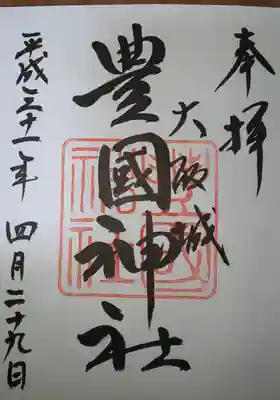 奉拝
大阪城
豊國神社
平成三十一年四月二十九日
豊國神社